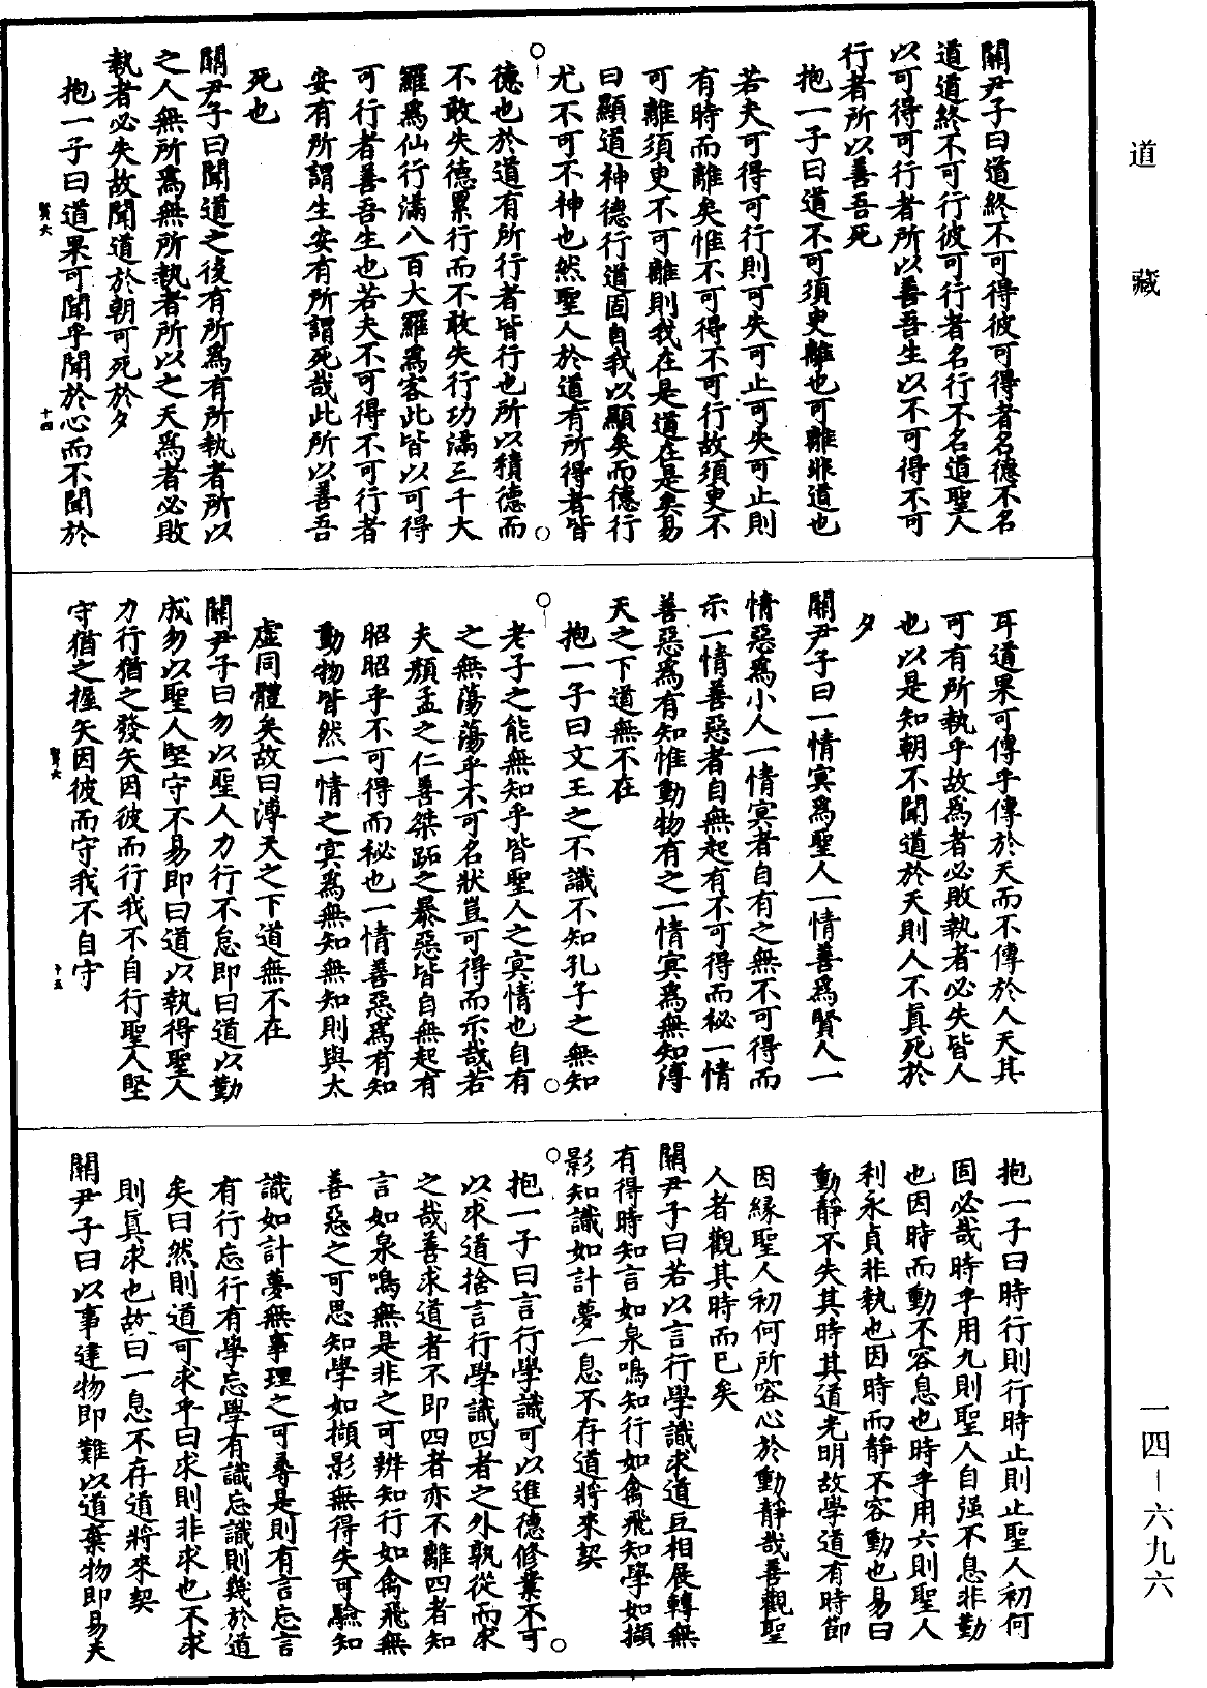 道藏
關尹子曰道終不可得彼可得者名德不名
道道終不可行彼可行者名行不名道聖人
以可得可行者所以善吾生以不可得不可
行者所以善吾死
抱一子曰道不可須臾離也可離非道也
若夫可得可行則可失可止可失可止則
有時而離矣惟不可得不可行故須臾不
可離須臾不可離則我在是道在是矣易
曰顯道神德行道固自我以顯矣而德行
尤不可不神也然聖人於道有所得者皆
德也於道有所行者皆行也所以積德而
不敢失德累行而不敢失行功滿三千大
羅為仙行滿八百大羅為客此皆以可得
可行者善吾生也若夫不可得不可行者
安有所謂生安有所謂死哉此所以善吾
死也
關尹子曰聞道之後有所為有所執者所以
之人無所為無所執者所以之天為者必敗
執者必失故聞道於朝可死於夕
抱一子曰道果可聞乎聞於心而不聞於
賢六
十四
耳道果可傳乎傳於天而不傳於人天其
可有所執乎故為者必敗執者必失皆人
也以是知朝不聞道於天則人不真死於
夕
關尹子曰一情冥為聖人一情善為賢人一
情惡為小人一情冥者自有之無不可得而
示一情善惡者自無起有不可得而秘一情
善惡為有知惟動物有之一情冥為無知溥
天之下道無不在
抱一子曰文王之不識不知孔子之無知
老子之能無知乎皆聖人之冥情也自有
之無蕩蕩乎不可名狀豈可得而示哉若
夫顏孟之仁善桀跖之暴惡皆自無起有
昭昭乎不可得而秘也一情善惡為有知
動物皆然一情之冥為無知無知則與太
虛同體矣故曰溥天之下道無不在
關尹子曰勿以聖人力行不怠即曰道以勤
成勿以聖人堅守不易即曰道以執得聖人
力行猶之發矢因彼而行我不自行聖人堅
守猶之握矢因彼而守我不自守
賢六
十五
抱一子曰時行則行時止則止聖人初何
固必哉時乎用九則聖人自强不息非勤
也因時而動不容息也時乎用六則聖人
利永貞非執也因時而靜不容動也易曰
動靜不失其時其道光明故學道有時節
因緣聖人初何所容心於動靜哉善觀聖
人者觀其時而已矣
關尹子曰若以言行學識求道互相展轉無
有得時知言如泉鳴知行如禽飛知學如擷
影知識如計夢一息不存道將來契
抱一子曰言行學識可以進德修業不可
以求道捨言行學識四者之外孰從而求
之哉善求道者不即四者亦不離四者知
言如泉鳴無是非之可辨知行如禽飛無
善惡之可思知學如擷影無得失可驗知
識如計夢無事理之可尋是則有言忘言
有行忘行有學忘學有識忘識則幾於道
矣曰然則道可求乎曰求則非求也不求
則真求也故曰一息不存道將來契
關尹子曰以事建物即難以道棄物即易天
一四－六九六